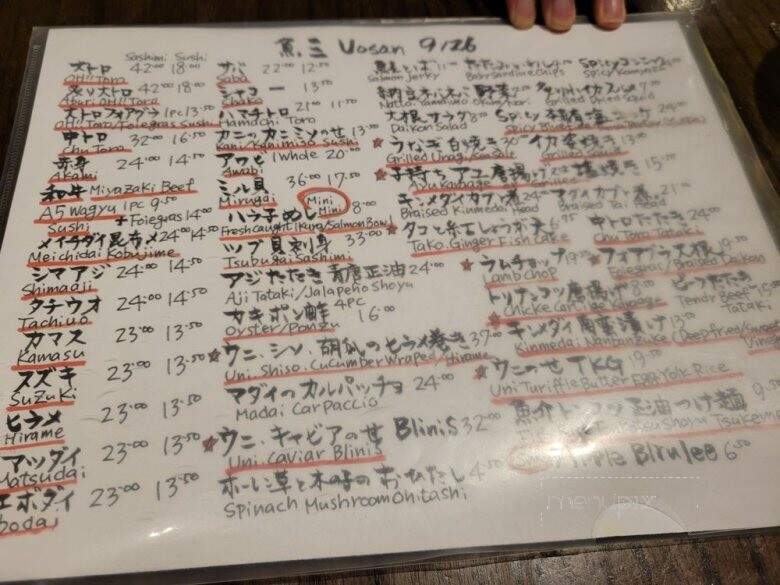 魚三 Uosan 9/26
Sashimi Sushi
大トロ 42.00 18.00
OH!! Toro
炙り大トロ 42.00 18.00
Aburi OH!! Toro
大トロフォアグラ 1pc 13.50
OH!! Toro/Foiegras Sushi
中トロ 32.00 16.50
Chu Toro
赤身 24.00 14.50
Akami
和牛 Miyazaki Beef
A5 Wagyu 1pc 9.50
Sushi + Foiegras 14.00
メイチダイ昆布〆 24.00 14.50
Meichidai Kobujime
シマアジ 24.00 14.50
Shimaaji
タチウオ 24.00 14.50
Tachiuo
カマス 23.00 13.50
Kamasu
スズキ 23.00 13.50
Suzuki
ヒラメ 23.00 13.50
Hirame
マツダイ 23.00 13.50
Matsudai
エボダイ 23.00 13.50
サバ 22.00 12.50
Saba
シャコー 13.50
Shako
ハマチトロ 21.00 11.50
Hamachi Toro
カニのカニミソのせ 13.50
Kani/Kanimiso Sushi
アワビ 1whole 20.00
Awabi
ミル貝 36.00 17.50
Mirugai
ハラ子めし Mini 8.00
Fresh caught (Ikura/Salmon Bowl)
ツブ貝刺身 33.00
Tsubugai Sashimi
アジたたき 青唐正油 24.00
Aji Tataki/Jalapeño Shoyu
カキポン酢 4pc 16.00
Oyster/Ponzu
☆ ウニ、シソ、胡瓜のヒラメ巻き 37.00
Uni Shiso, Cucumber Wraped/Hirame
マダイのカルパッチョ 24.00
Madai Carpaccio
☆ ウニ、キャビアのせ Blinis 32.00
Uni Caviar Blinis
ホーレン草と木の子のおひたし 4.50
Spinach Mushroom Ohitashi
Salmon Jerky
Baby Sardine Chips
納豆ネバネバ野菜
Grilled Dried Squid
大根サラダ
Daikon Salad
☆ うなぎ白焼き イカ 焼き 13.50
Grilled Unagi/Sea Salt
☆ 子持ちアユ唐揚げ 塩焼き 15.50
キンメダイカブト煮 マダイカブト煮
Braised Kinmedai Head Braised Tai Head
☆ タコと紅しょうが天 6.95 中トロたたき 24.00
Tako Ginger Fish Cake Chu Toro Tataki
☆ ラムチョップ ☆ フォアグラ大根
Lamb chop Foiegras/Braised Daikon
トリナンコツ唐揚げ 8.50 ビーフたたき
Tendr Beef Tataki
☆ キンメダイ南蛮漬け 13.50
Kinmedai Nanbanzuke (Deep fried/
☆ ウニのせ TKG 19.50
Uni Turiffle Butter Egg Yolk Rice
魚介トンコツ正油つけ麺
Apple Blrulee 6.50
menupix